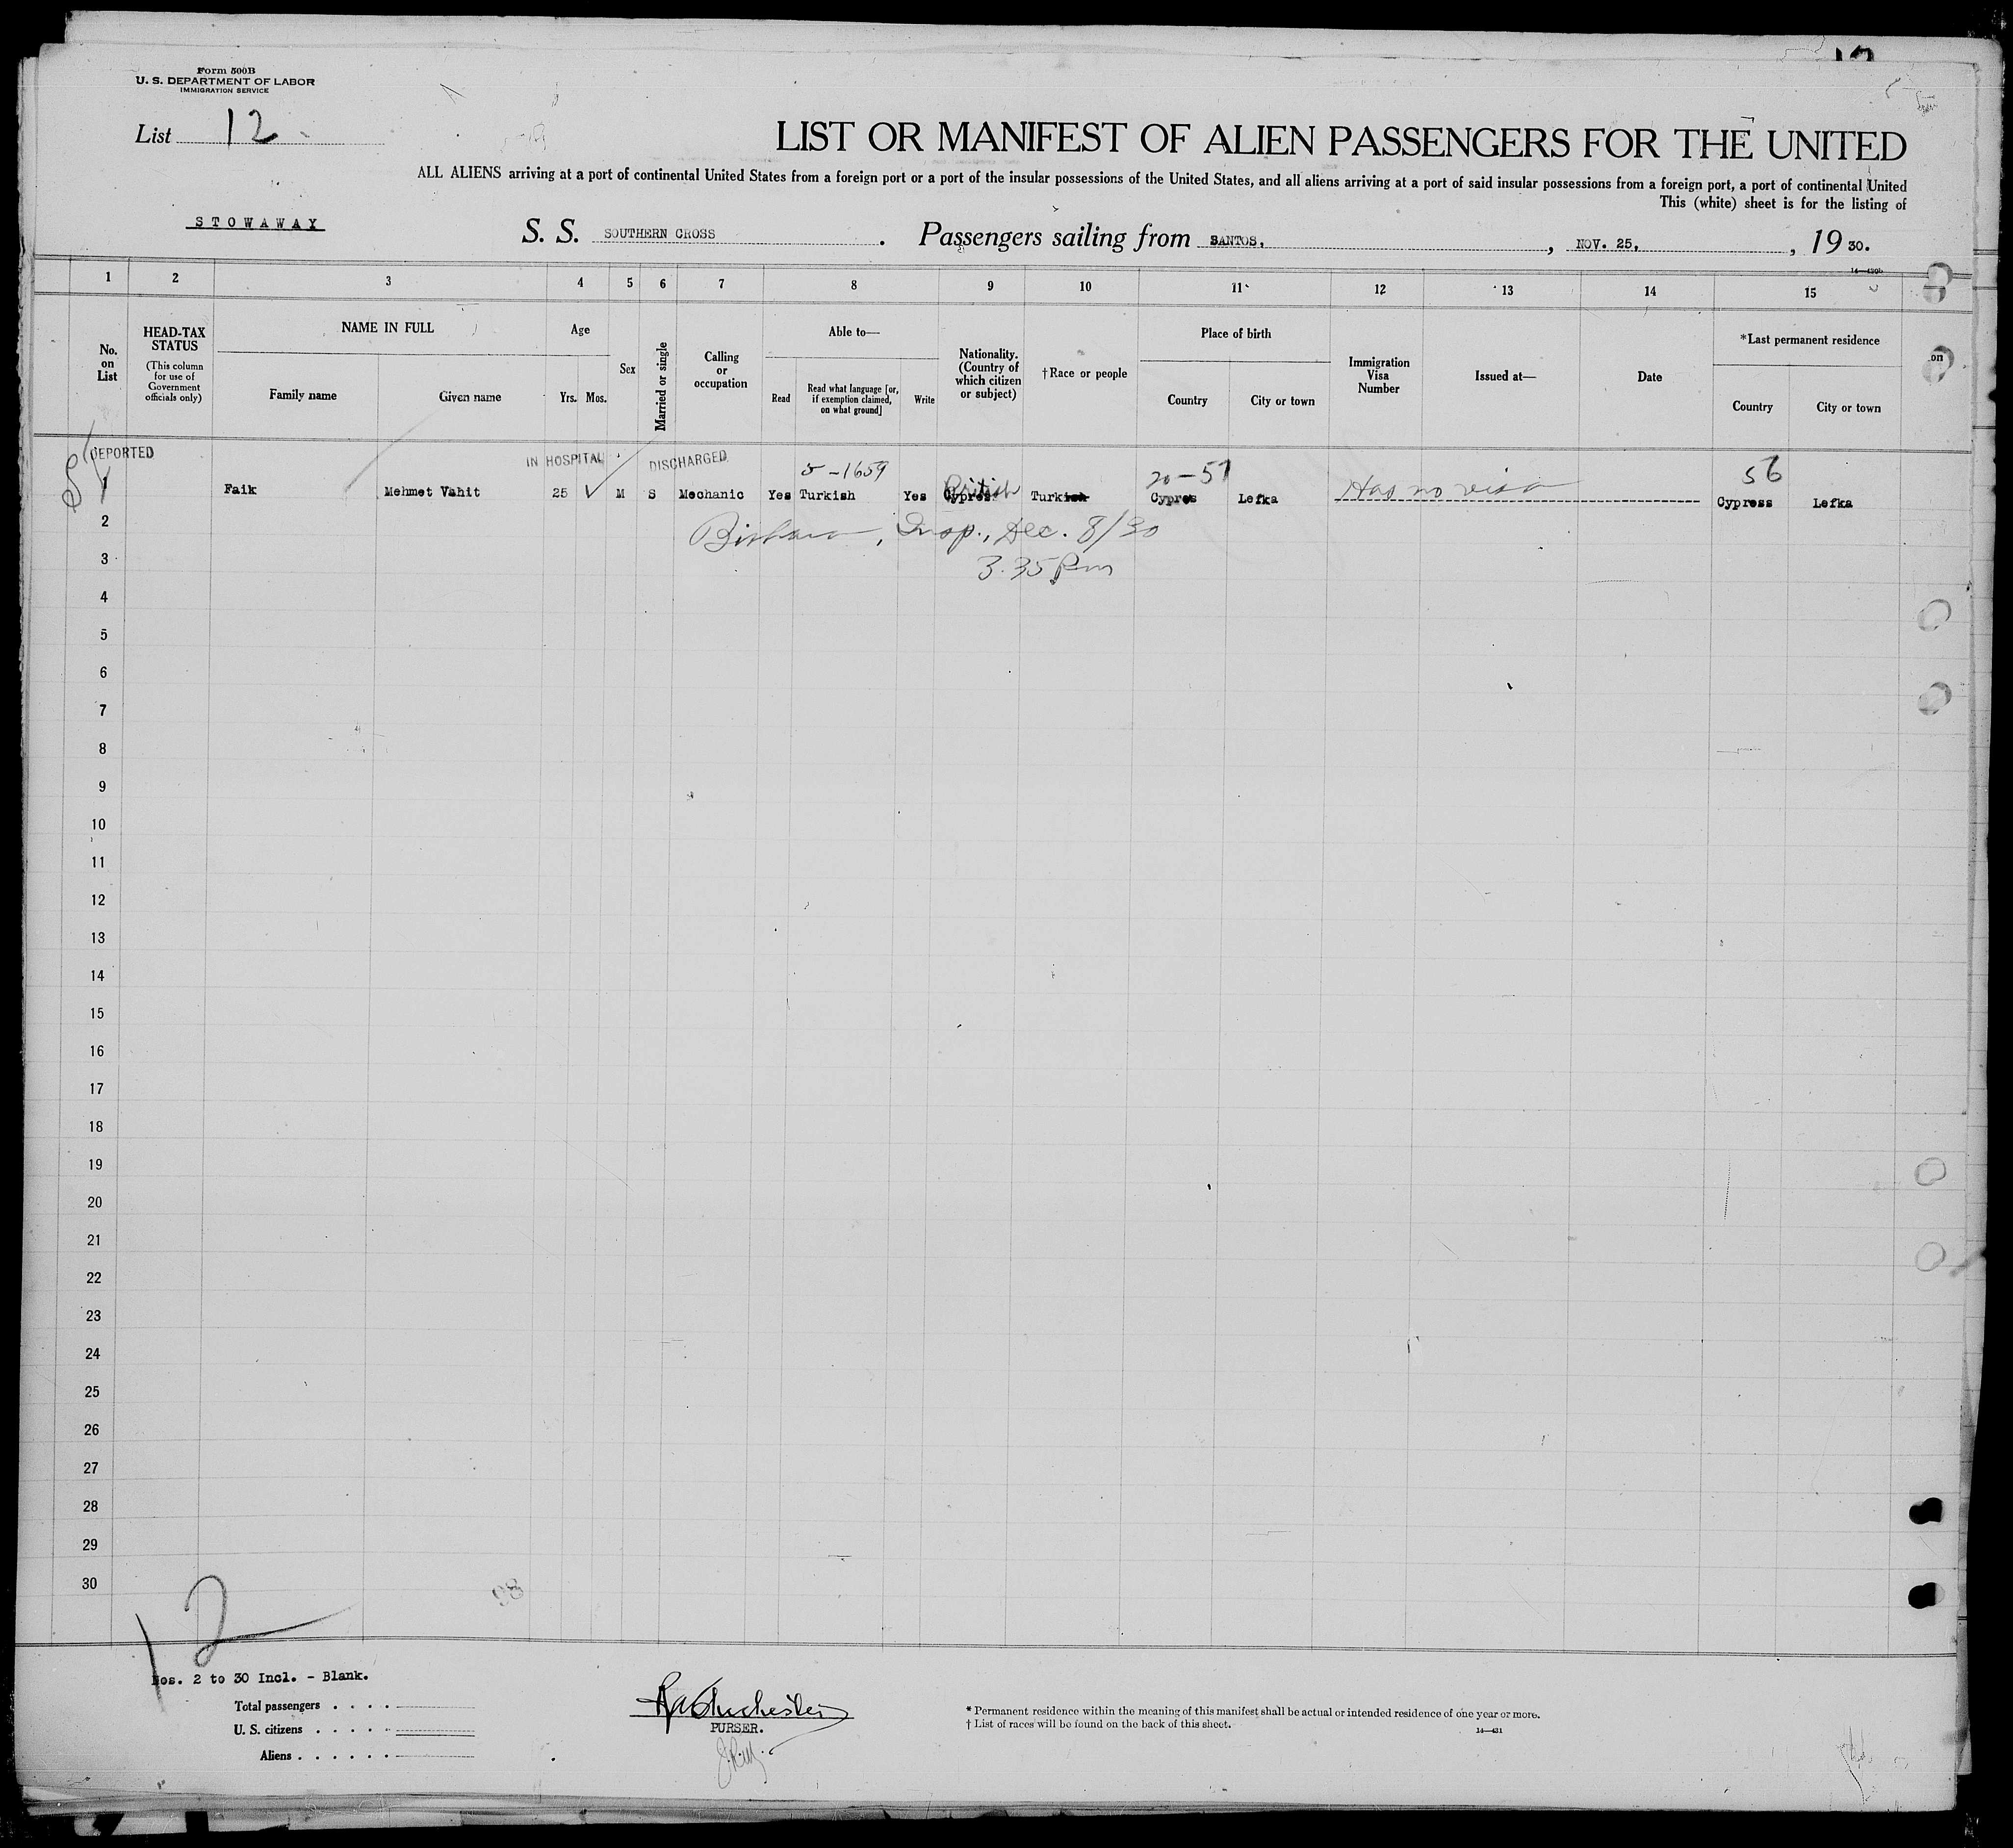 Form 500B
U. S. DEPARTMENT OF LABOR
IMMIGRATION SERVICE
List 12
LIST OR MANIFEST OF ALIEN PASSENGERS FOR THE UNITED
ALL ALIENS arriving at a port of continental United States from a foreign port or a port of the insular possessions of the United States, and all aliens arriving at a port of said insular possessions from a foreign port, a port of continental United
This (white) sheet is for the listing of
STOWAWAY
S. S. SOUTHERN CROSS . Passengers sailing from SANTOS, , NOV. 25, , 19 30.
1 2 3 4 5 6 7 8 9 10 11 12 13 14 15
No. on List
HEAD-TAX STATUS
(This column for use of Government officials only)
NAME IN FULL
Family name
Given name
Age
Yrs. Mos.
Sex
Married or single
Calling or occupation
Able to—
Read
Read what language [or, if exemption claimed, on what ground]
Write
Nationality. (Country of which citizen or subject)
†Race or people
Place of birth
Country
City or town
Immigration Visa Number
Issued at—
Date
*Last permanent residence
Country
City or town
on
DEPORTED
IN HOSPITAL
DISCHARGED
5-1659
20-57
56
1 Faik Mehmet Vahit 25 M S Mechanic Yes Turkish Yes Cypres British Turkish Cypres Lefka Has no visa Cypress Lefka
Insp., Dec. 8/30
3.35 Pm
2
3
4
5
6
7
8
9
10
11
12
13
14
15
16
17
18
19
20
21
22
23
24
25
26
27
28
29
30
98
12
Nos. 2 to 30 Incl. - Blank.
Total passengers
U. S. citizens
Aliens
PURSER.
* Permanent residence within the meaning of this manifest shall be actual or intended residence of one year or more.
† List of races will be found on the back of this sheet.
14—431